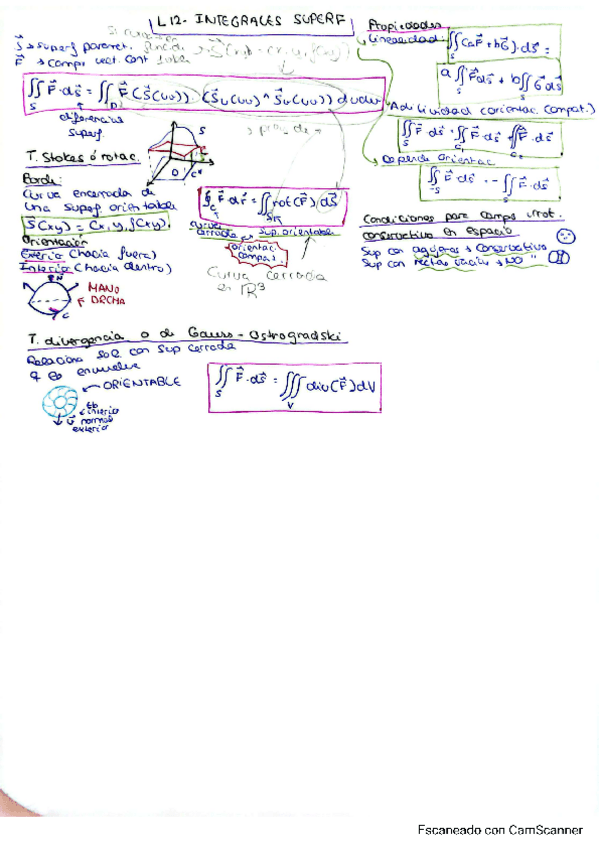 L12- INTEGRALES SUPERF
S → superf paramet.
F → campo vect. cont
∬_S F·dS = ∬_D F(S(u,v))·(S_u(u,v) ^ S_v(u,v)) du dv
diferencial
superf.
T. Stokes ó rotac.
Borde:
Curva encerrada de
una superf orientable
S(x,y) = (x, y, f(x,y))
Orientación
Exterio (hacia fuera)
Interio (hacia dentro)
N
MANO
DRCHA
C
S
D
∮_C F·dr = ∬ rot(F)·dS
curva
cerrada
sup. orientable
orientac.
compat.
Curva cerrada
en R³
Propiedades
Linealidad: ∬_S (aF + bG)·dS =
a∬F dS + b∬G dS
Aditividad (orientac. compat.)
Depende orientac.
∬_{-S} F·dS = -∬_S F·dS
Condiciones para campo irrot.
conservativo en espacio
Sup con agujeros → conservativo
Sup con rectas vacías → NO "
T. divergencia o de Gauss - Ostrogradski
Relaciona sol con sup cerrada
q lo envuelve
ORIENTABLE
normal
exterio
∬_S F·dS = ∭_V div(F) dV
Escaneado con CamScanner